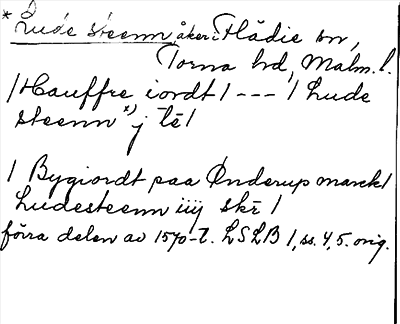 * Lude steenn, åker i Flädie sn,
Torna hd, Malm. l.
/ Hauffre iordt / --- / Lude
steenn *) j te /
/ Bygiordt paa Ønderup marck /
Ludesteenn iiij skr /
förra delen av 1570-t. LSLB 1, ss. 4, 5. orig.